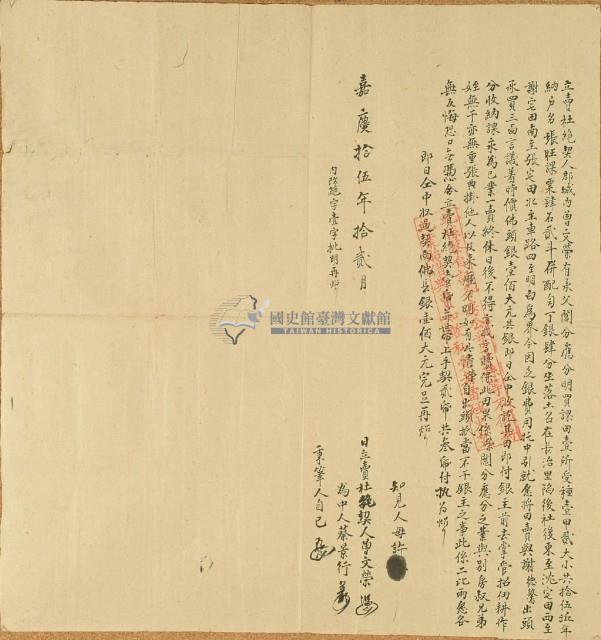 立賣杜絕契人郡城內曾文榮有承父鬮分應分明買課田壹所受種壹甲貳大小共拾伍坵年
納戶名張旺課粟肆石貳斗併配勻丁銀肆分坐落土名在長治里隙後社後東至沈宅田西至
謝宅田南至張宅田北至車路四至明白為界今因乏銀費用托中引就愿將田賣與謝總鶯出頭
承買三面言議著時價佛頭銀壹佰大元其銀即日仝中收訖其田即付銀主前去掌管招佃耕作
分收納課永為己業一賣終休日後不得言找言贖保此田果係榮鬮分應分之業與別房叔兄弟
姪無干亦無重張典掛他人以及來歷不明如有此情榮自出頭抵當不干銀主之事此係二比兩愿各
無反悔恐口無憑合立賣杜絕契壹帋並帶上手契貳帋共叁帋付執為炤
即日仝中收過契內佛頭銀壹佰大元完足再炤
嘉慶拾伍年拾貳月
內改題字壹字批明再炤
知見人母許
日立賣杜絕契人曾文榮
為中人蔡景行
秉筆人自己
國史館臺灣文獻館
TAIWAN HISTORICA